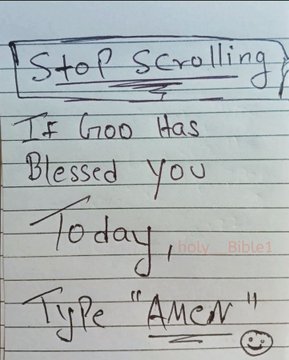 Stop Scrolling
If God Has
Blessed You
Today,
holy_ Bible1
Type "AMEN"